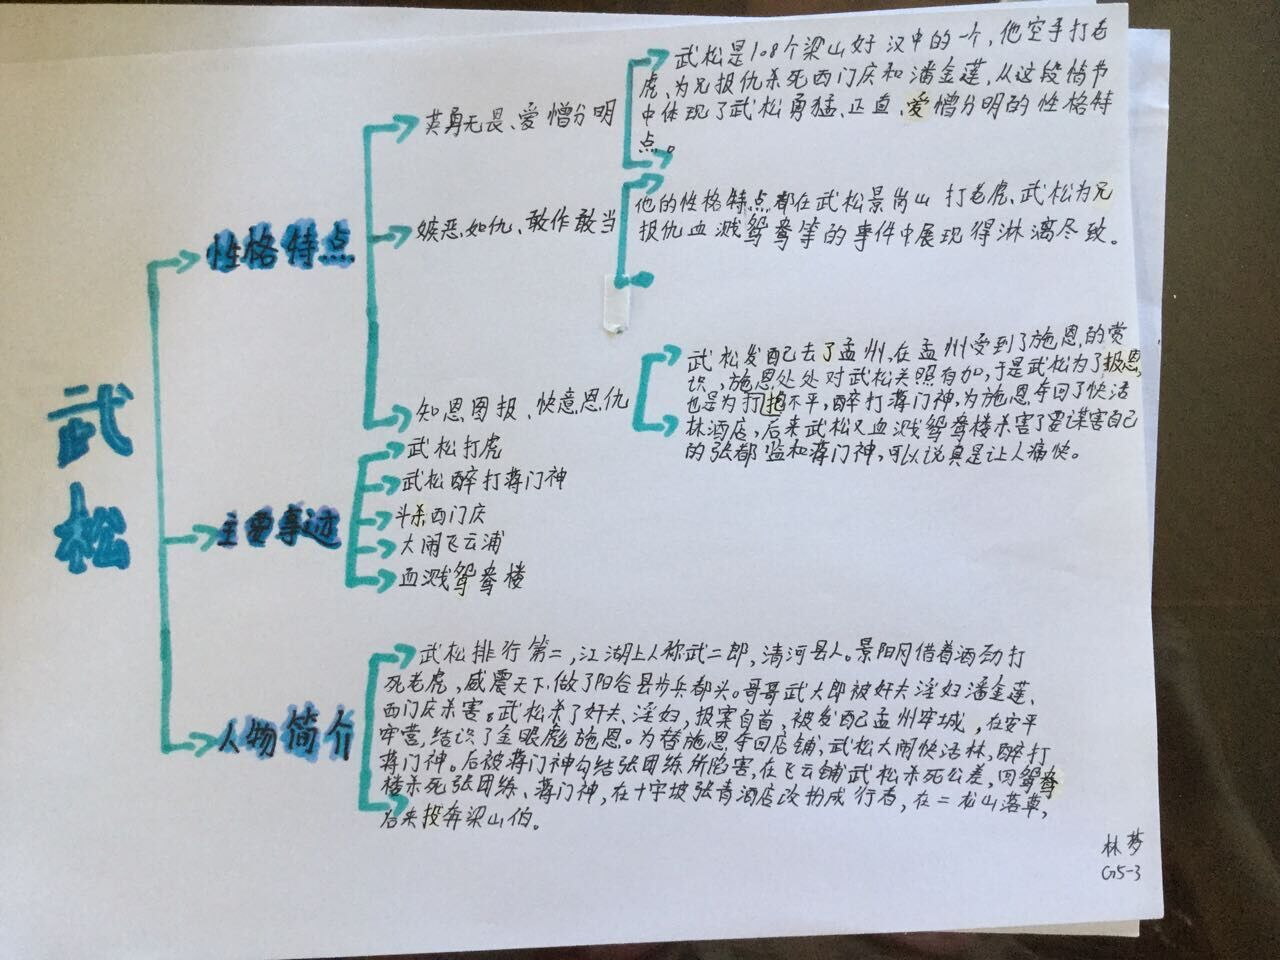 武松
性格特点
英勇无畏、爱憎分明
武松是108个梁山好汉中的一个,他空手打老
虎、为兄报仇杀死西门庆和潘金莲,从这段情节
中体现了武松勇猛、正直、爱憎分明的性格特
点。
嫉恶如仇、敢作敢当
他的性格特点都在武松景岗山打老虎、武松为兄
报仇血溅鸳鸯等的事件中展现得淋漓尽致。
知恩图报、快意恩仇
武松发配去了孟州,在孟州受到了施恩的赏
识,施恩处处对武松关照有加,于是武松为了报恩,
也是为打抱不平,醉打蒋门神,为施恩夺回了快活
林酒店,后来武松又血溅鸳鸯楼杀害了要谋害自己
的张都监和蒋门神,可以说真是让人痛快。
主要事迹
武松打虎
武松醉打蒋门神
斗杀西门庆
大闹飞云浦
血溅鸳鸯楼
人物简介
武松排行第二,江湖上人称武二郎,清河县人。景阳冈借着酒劲打
死老虎,威震天下,做了阳谷县步兵都头。哥哥武大郎被奸夫淫妇潘金莲、
西门庆杀害。武松杀了奸夫、淫妇,报案自首,被发配孟州牢城,在安平
牢营,结识了金眼彪施恩。为替施恩夺回店铺,武松大闹快活林,醉打
蒋门神。后被蒋门神勾结张团练所陷害,在飞云铺武松杀死公差,回鸳鸯
楼杀死张团练、蒋门神,在十字坡张青酒店改扮成行者,在二龙山落草,
后来投奔梁山伯。
林梦
G5-3